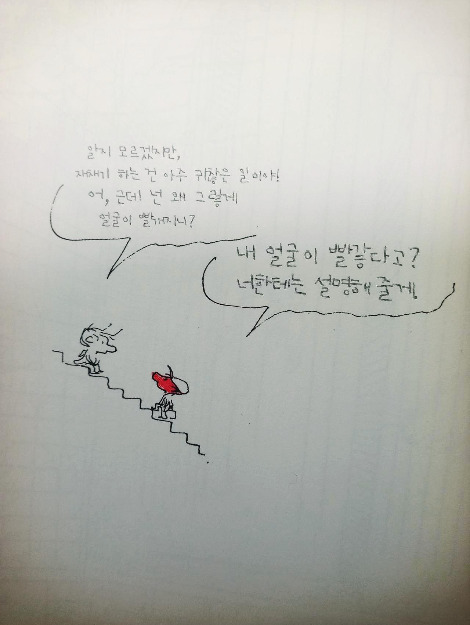 알지 모르겠지만,
재채기 하는 건 아주 귀찮은 일이야!
어, 근데 넌 왜 그렇게
얼굴이 빨개지니?
내 얼굴이 빨갛다고?
너한테는 설명해 줄게!